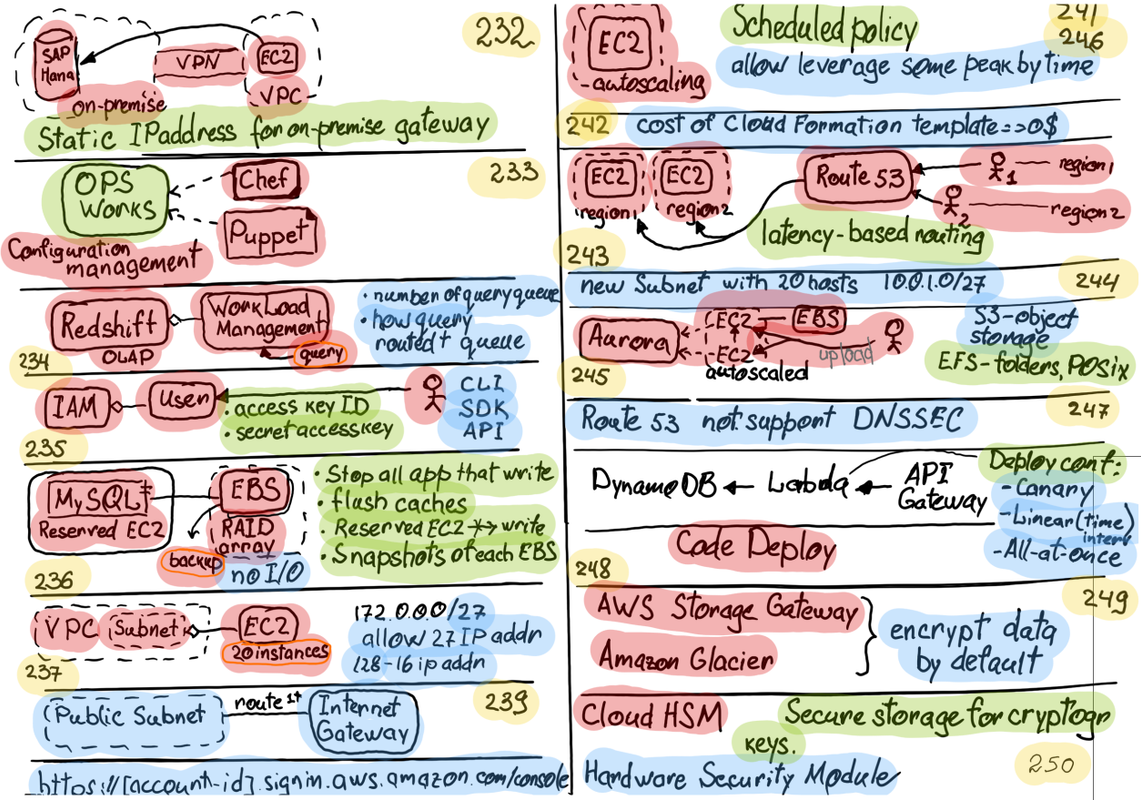 SAP
Hana
VPN
EC2
on-premise
VPC
232
Static IP address for on-premise gateway
OPS
Works
Chef
Puppet
Configuration
management
233
Redshift
OLAP
WorkLoad
Management
query
• number of query queue
• how query
routed + queue
234
IAM
User
• access key ID
• secret access key
CLI
SDK
API
235
MySQL
Reserved EC2
EBS
RAID
array
backup
no I/O
• Stop all app that write
• flush caches
Reserved EC2 write
• Snapshots of each EBS
236
VPC
Subnet
EC2
20 instances
172.0.0.0/27
allow 27 IP addr
128-16 ip addr
237
Public Subnet
route
Internet
Gateway
239
https://[account-id].signin.aws.amazon.com/console
EC2
-autoscaling
Scheduled policy
allow leverage some peak by time
241
246
242
cost of Cloud Formation template ==> 0$
EC2
region1
EC2
region2
Route 53
1
region1
2
region2
latency-based routing
243
new Subnet with 20 hosts 10.0.1.0/27
244
Aurora
EC2
EC2
autoscaled
EBS
upload
S3-object
storage
EFS-folders, POSix
245
Route 53 not support DNSSEC
247
DynamoDB
Lambda
API
Gateway
Deploy conf:
-Canary
-Linear (time)
interv
-All-at-once
Code Deploy
248
AWS Storage Gateway
Amazon Glacier
encrypt data
by default
249
Cloud HSM
Secure storage for cryptogr
keys.
Hardware Security Module
250